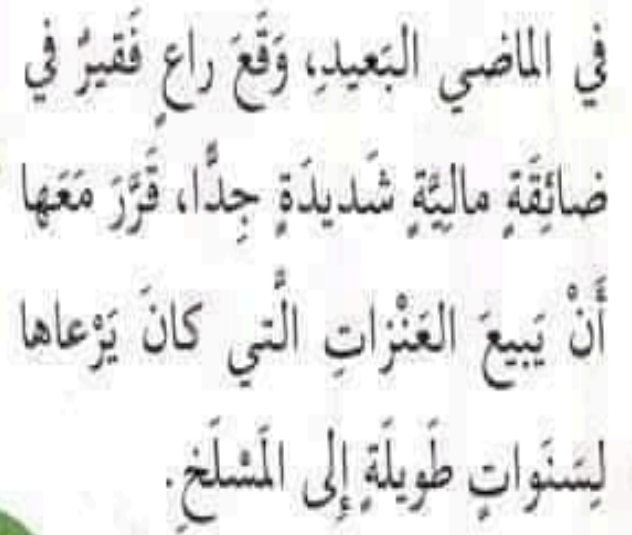 في الماضي البَعيدِ، وَقَعَ راعٍ فَقيرٌ في
ضائِقَةٍ مالِيَّةٍ شَديدَةٍ جِدًّا، قَرَّرَ مَعَها
أَنْ يَبيعَ العَنْزاتِ الَّتي كانَ يَرْعاها
لِسَنَواتٍ طَويلَةٍ إِلى المَسْلَخِ.